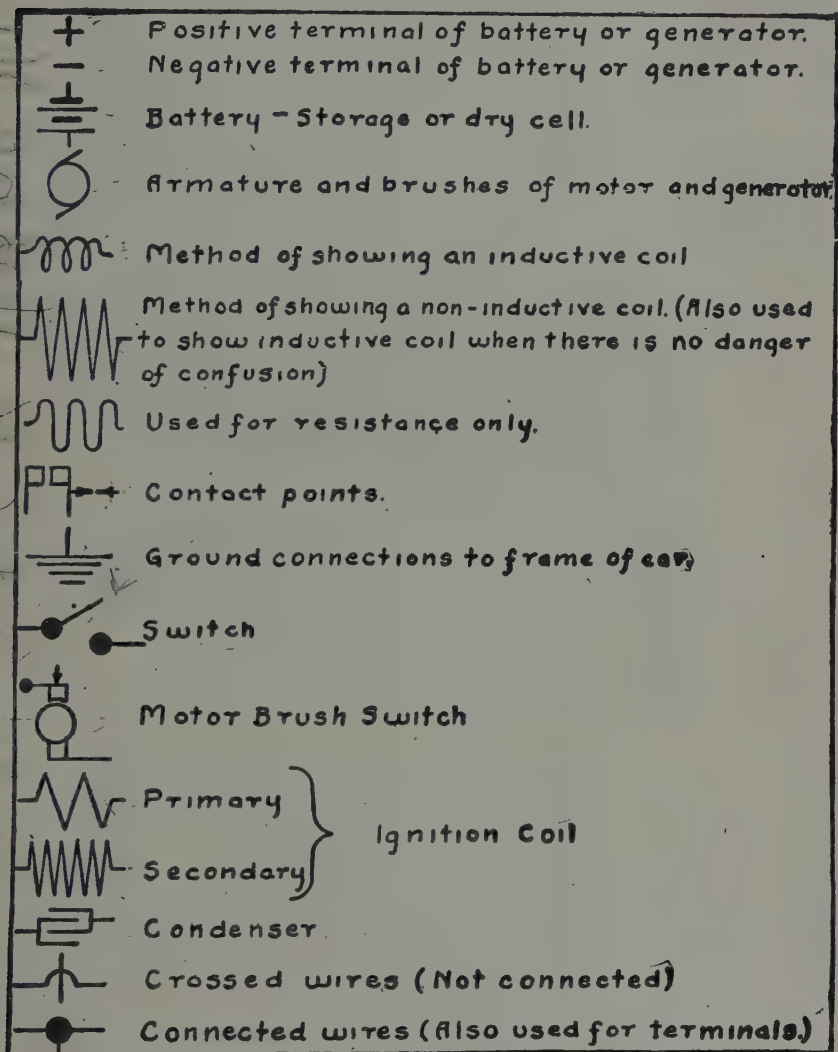 + Positive terminal of battery or generator.
− Negative terminal of battery or generator.
Battery - Storage or dry cell.
Armature and brushes of motor and generator.
Method of showing an inductive coil
Method of showing a non-inductive coil. (Also used
to show inductive coil when there is no danger
of confusion)
Used for resistance only.
Contact points.
Ground connections to frame of car.
Switch
Motor Brush Switch
Primary
Ignition Coil
Secondary
Condenser
Crossed wires (Not connected)
Connected wires (Also used for terminals.)